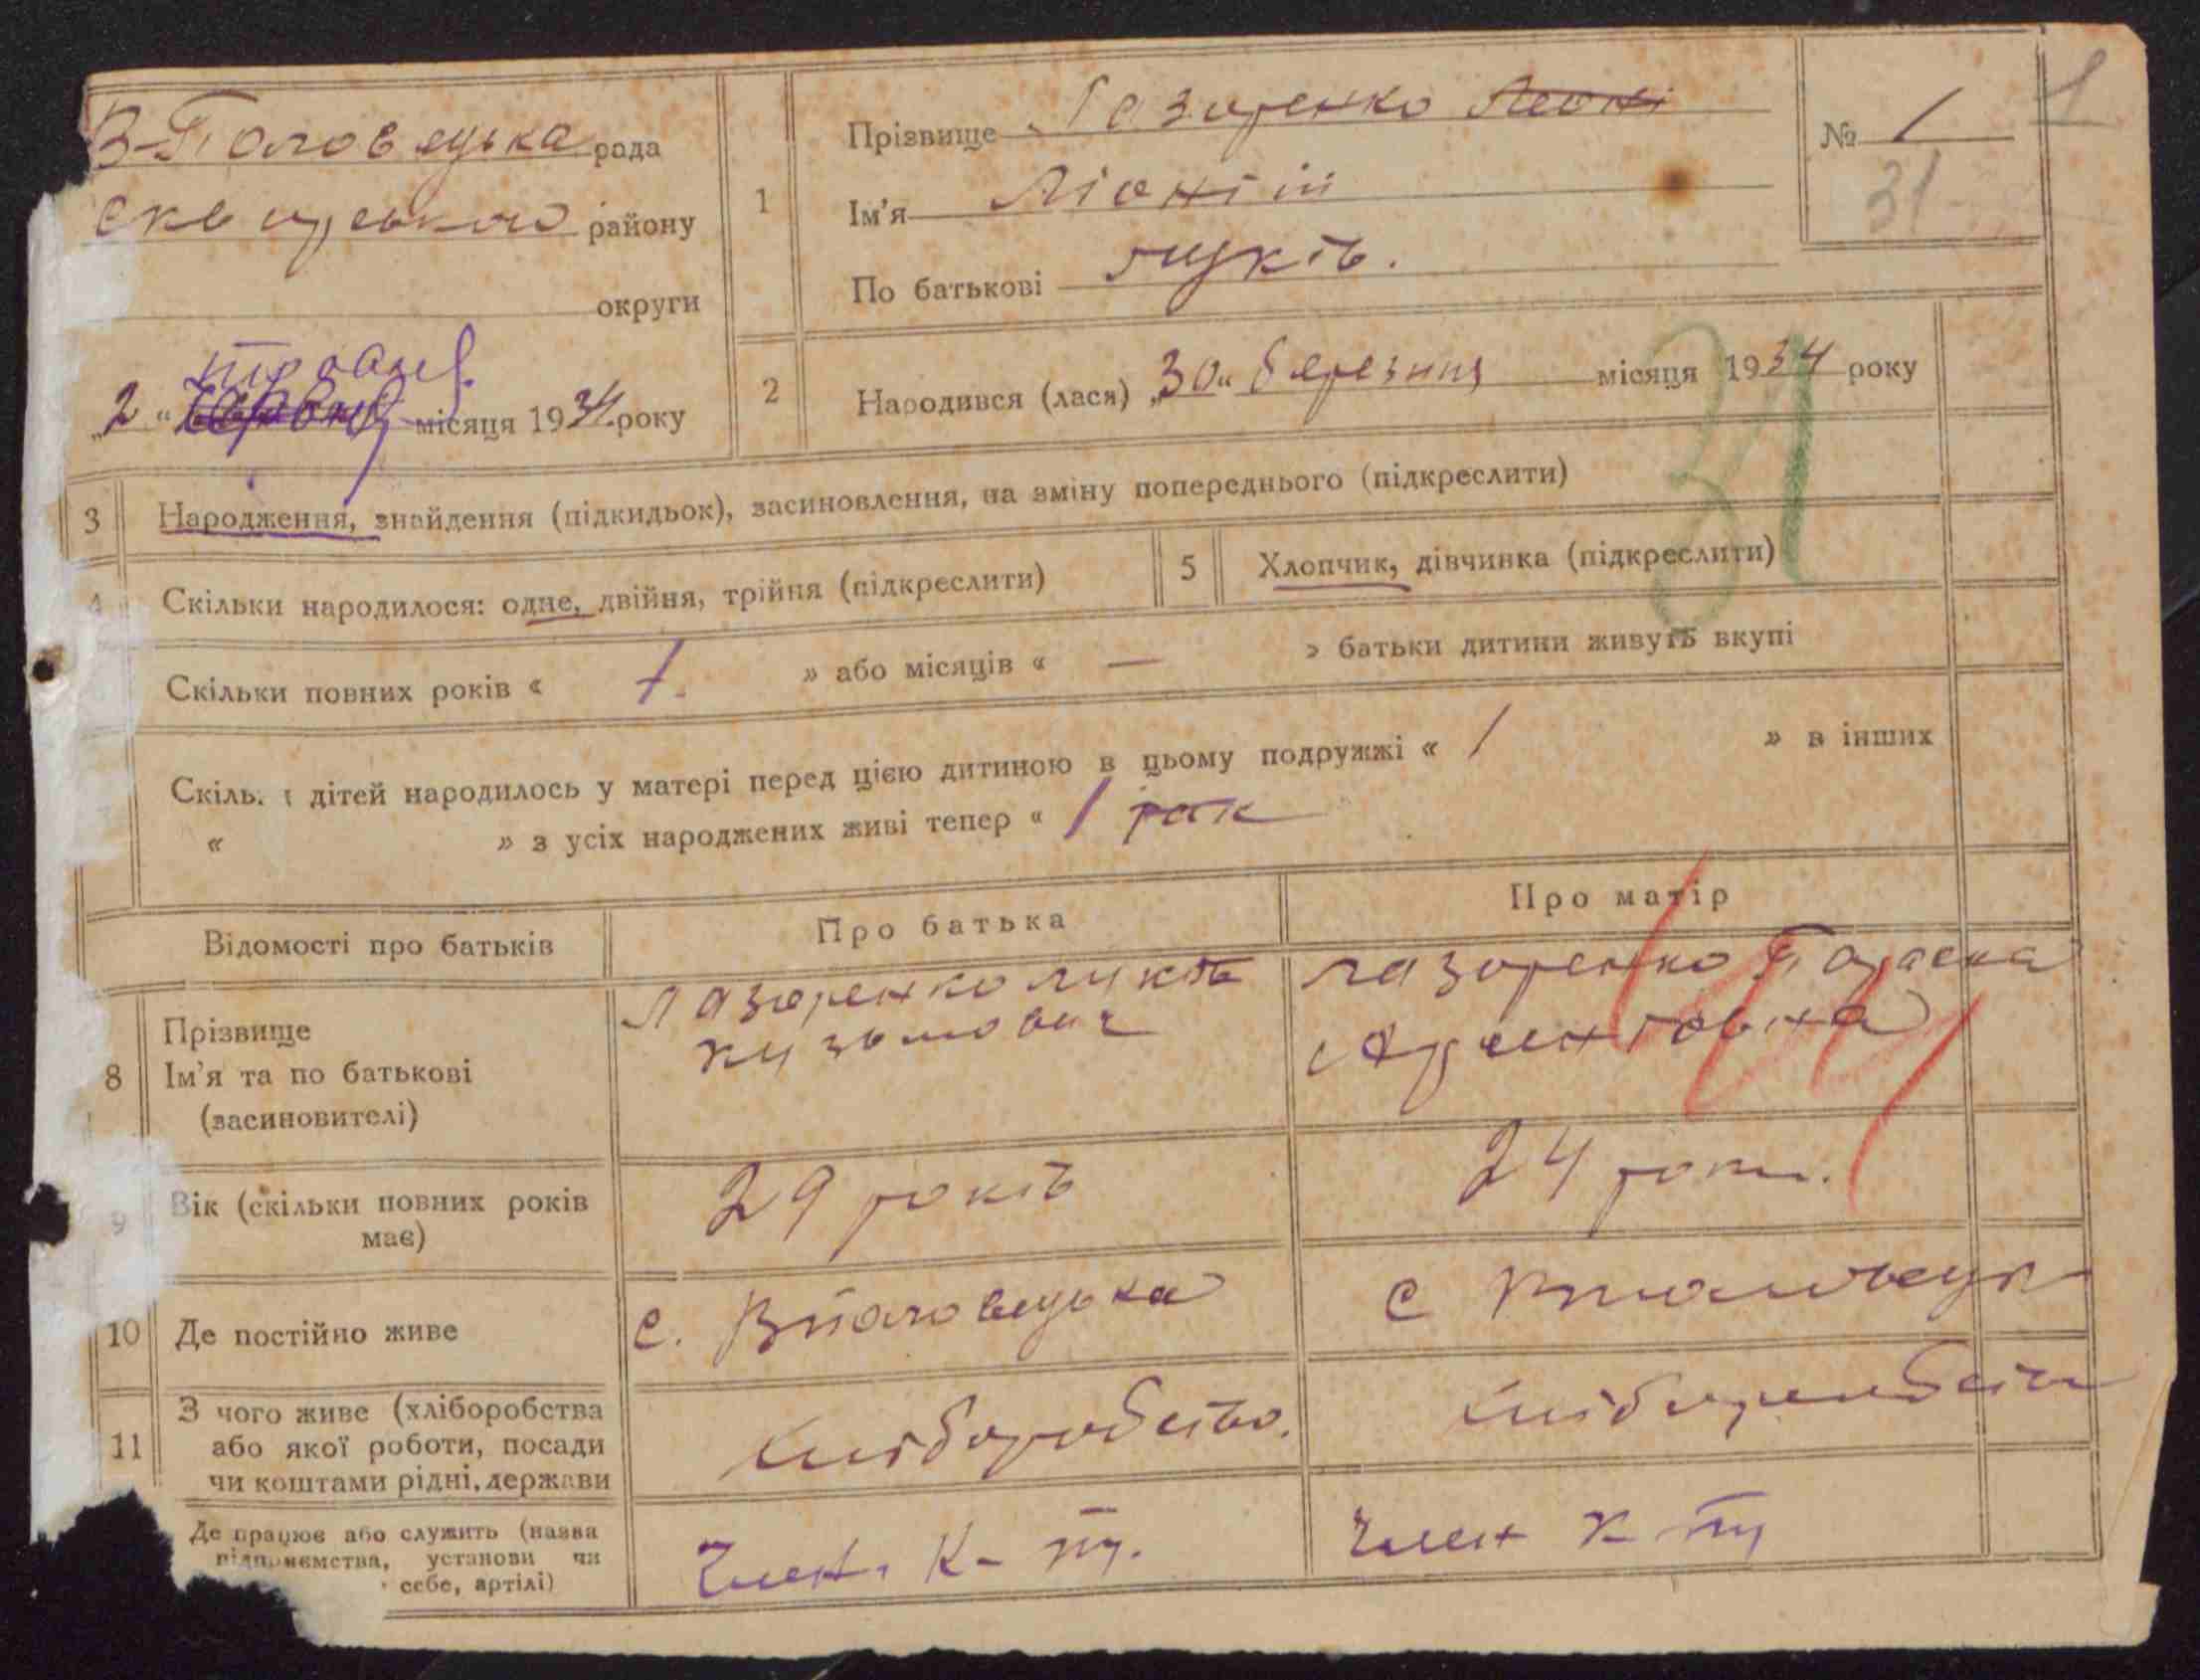 В-Половецька рада
Сквирського району
округи
травня
"2" червня місяця 1934 року
1
Прізвище Лазоренко Леоні
Ім'я Ліонтій
По батькові Лукіч.
№ 1
31
1
2
Народився (лася) "30" березня місяця 1934 року
31
3 Народження, знайдення (підкидьок), засиновлення, на зміну попереднього (підкреслити)
4 Скільки народилося: одне, двійня, трійня (підкреслити)
5 Хлопчик, дівчинка (підкреслити)
Скільки повних років « 7. » або місяців « — » батьки дитини живуть вкупі
Скіль и дітей народилось у матері перед цією дитиною в цьому подружжі « 1 » в інших
« » з усіх народжених живі тепер « 1 рак
Відомості про батьків
Про батька
Про матір
8
Прізвище
Ім'я та по батькові
(засиновителі)
Лазоренко Лука
Кузьмович
Лазоренко Параска
9 Вік (скільки повних років
має)
29 років
24 роки.
10 Де постійно живе
с. Вполовецька
с
11
З чого живе (хліборобства
або якої роботи, посади
чи коштами рідні, держави
хліборобство.
Де працює або служить (назва
підприємства, установи чи
себе, артілі)
Член. К-пу.
Член К-пу